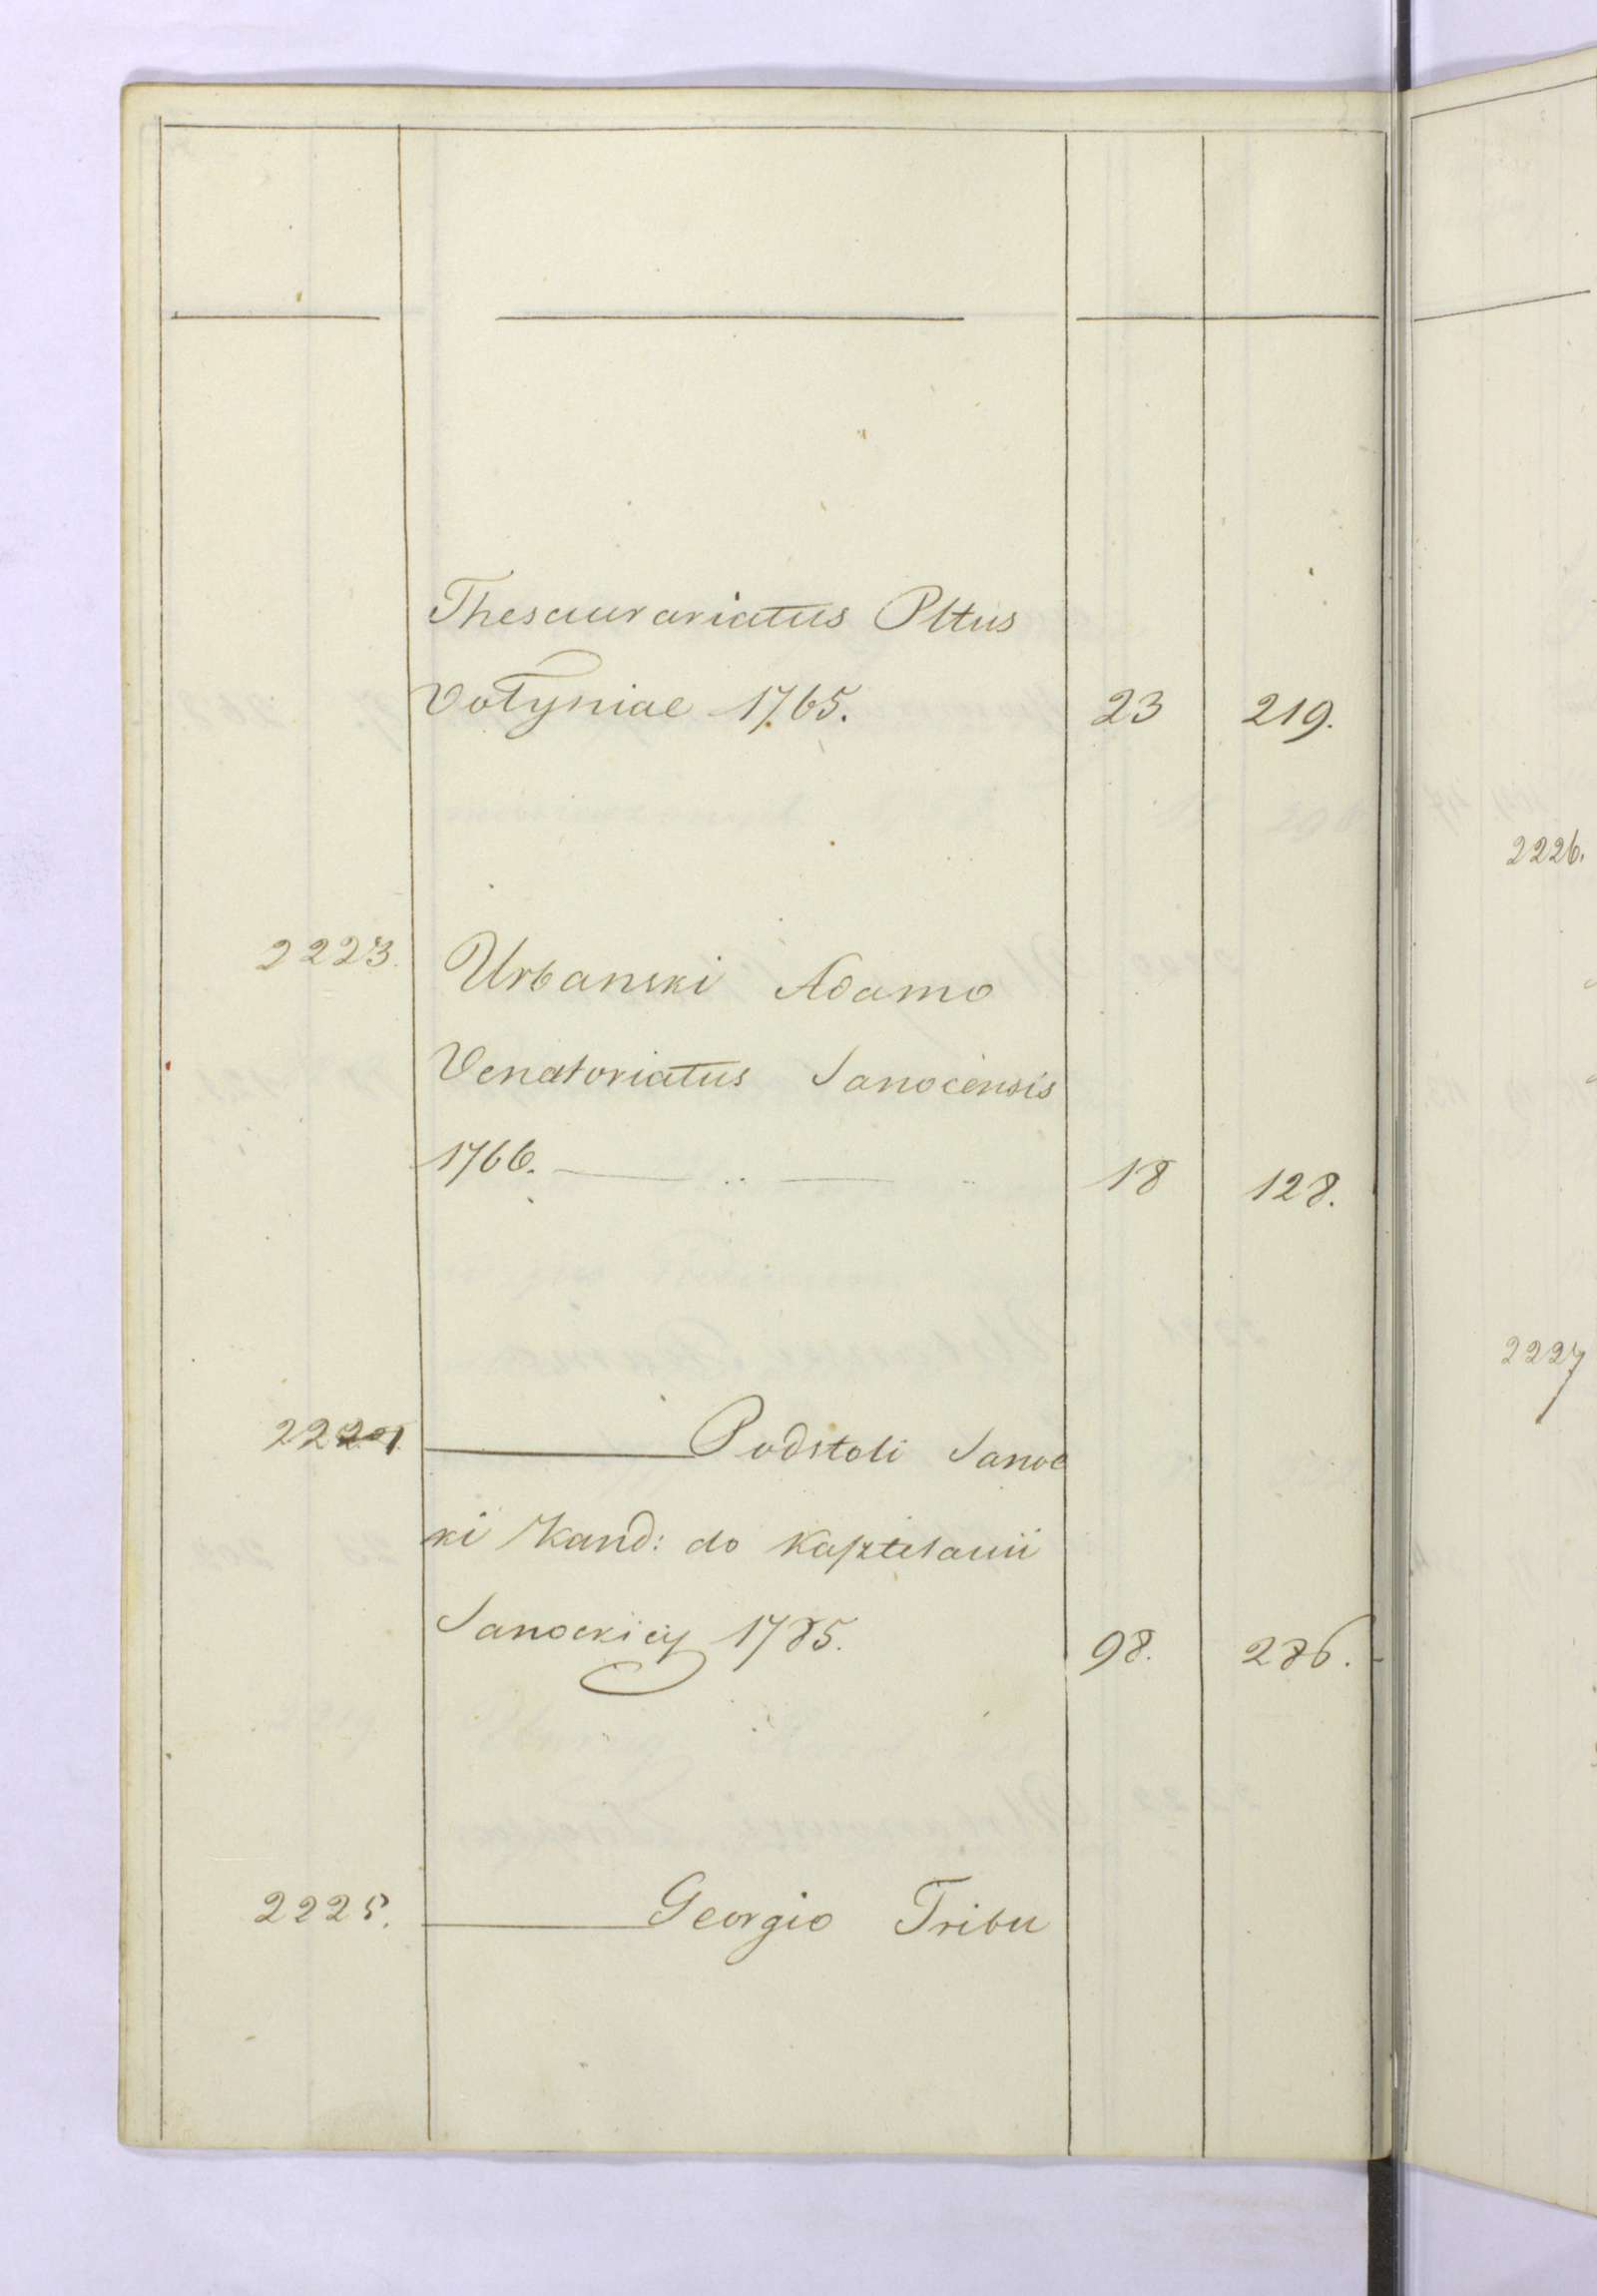 Thesaurariatus Pltus
Vołyniae 1765. 23 219.
2223. Urbanski Adamo
Venatoriatus Sanocensis
1766. — .. — .. 18 128.
2224. ——— Podstoli Sanoc
ki Kand: do Kasztelanii
Sanockiey 1785. 98. 286.
2225. ——— Georgio Tribu
2226.
2227